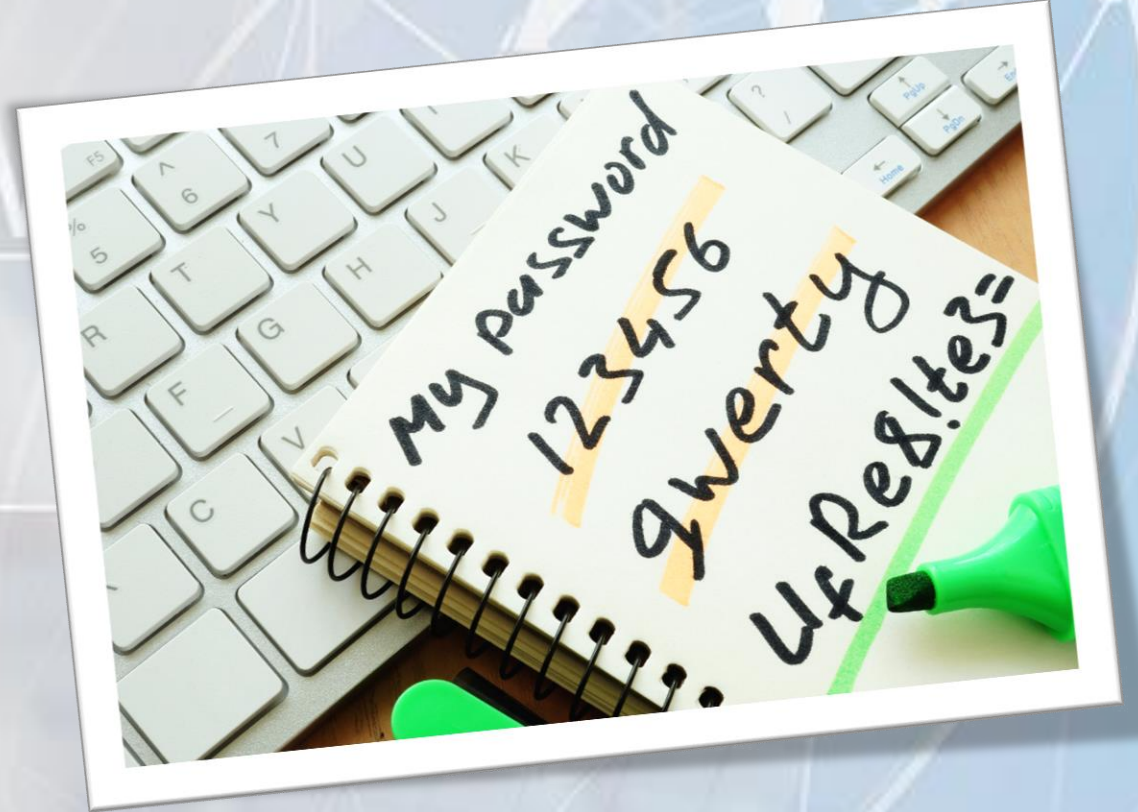 My password
123456
qwerty
UfRe8!te3=
F5
^
6
7
%
5
T
Y
U
R
F
_
G
H
J
K
C
V
?
/
↑
PgUp
↓
PgDn
←
Home
→